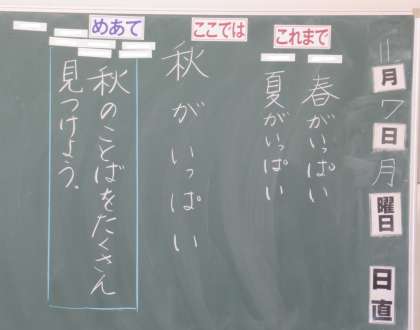 11月7日月曜日
日直
これまで
春がいっぱい
夏がいっぱい
ここでは
秋がいっぱい
めあて
秋のことばをたくさん
見つけよう。